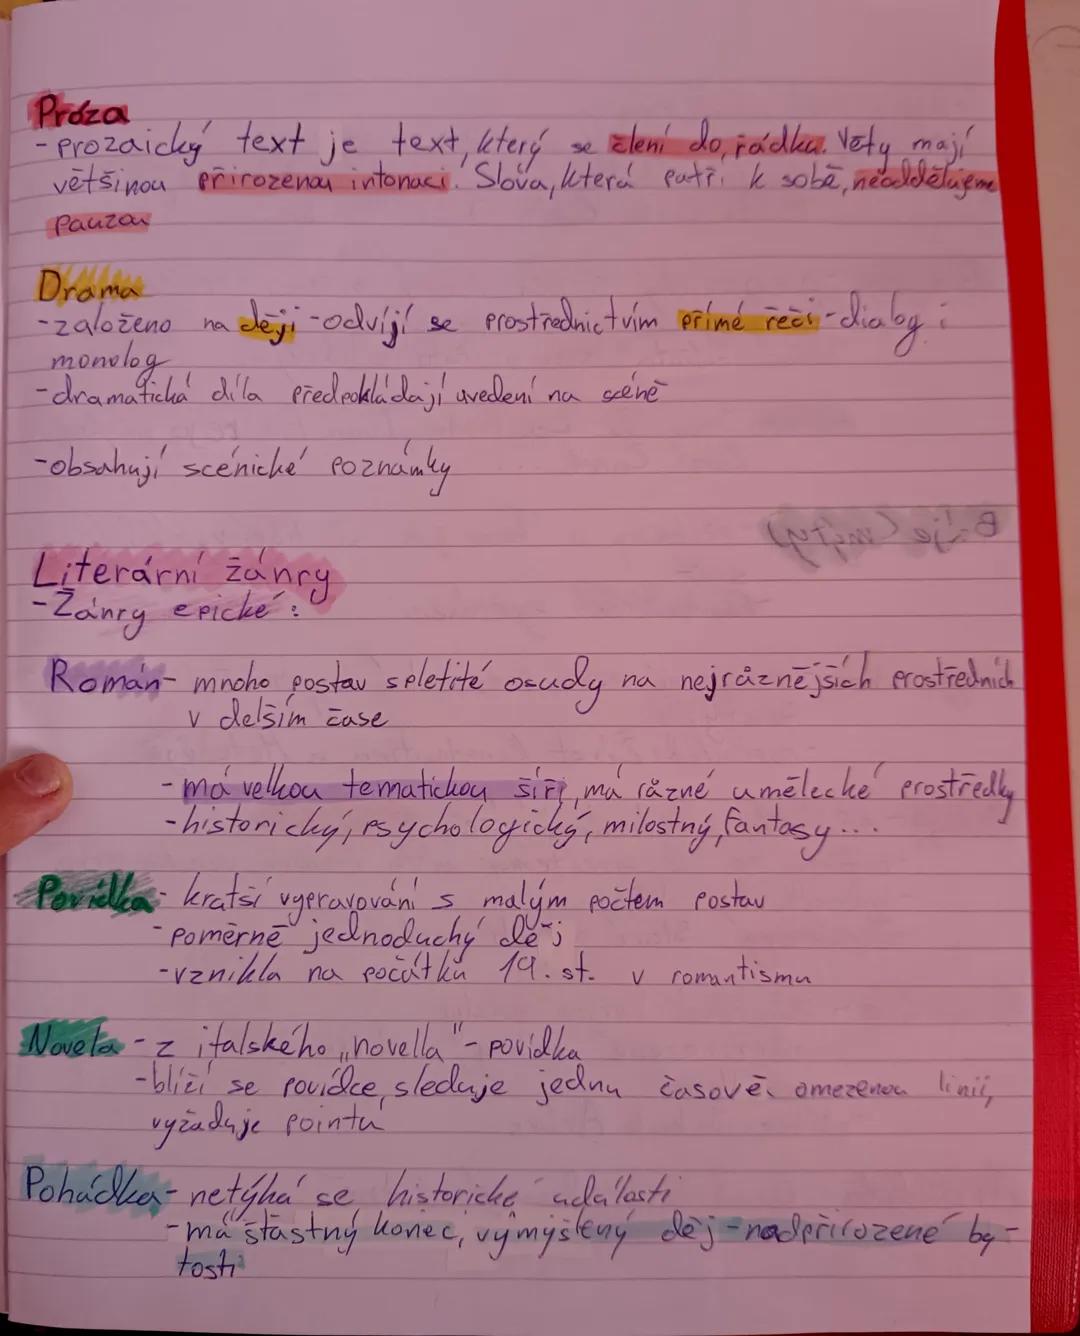 Próza
- prozaický text je text, který se člení do řádků. Věty mají
většinou přirozenou intonaci. Slova, která patří k sobě, neoddělujeme
pauzou
Drama
- založeno na ději - odvíjí se prostřednictvím přímé řeči - dialog i
monolog
- dramatická díla předpokládají uvedení na scéně
- obsahují scénické poznámky
Báje (mýty)
Literární žánry
- Žánry epické:
Román - mnoho postav spletité osudy na nejrůznějších prostředních
v delším čase
- má velkou tematickou šíři, má různé umělecké prostředky
- historický, psychologický, milostný, fantasy...
Povídka - kratší vypravování s malým počtem postav
- poměrně jednoduchý děj
- vznikla na počátku 19. st. v romantismu
Novela - z italského „novella" - povídka
- blíží se povídce, sleduje jednu časově omezenou linii,
vyžaduje pointu
Pohádka - netýká se historické události
- má šťastný konec, vymyšlený děj - nadpřirozené by-
tosti